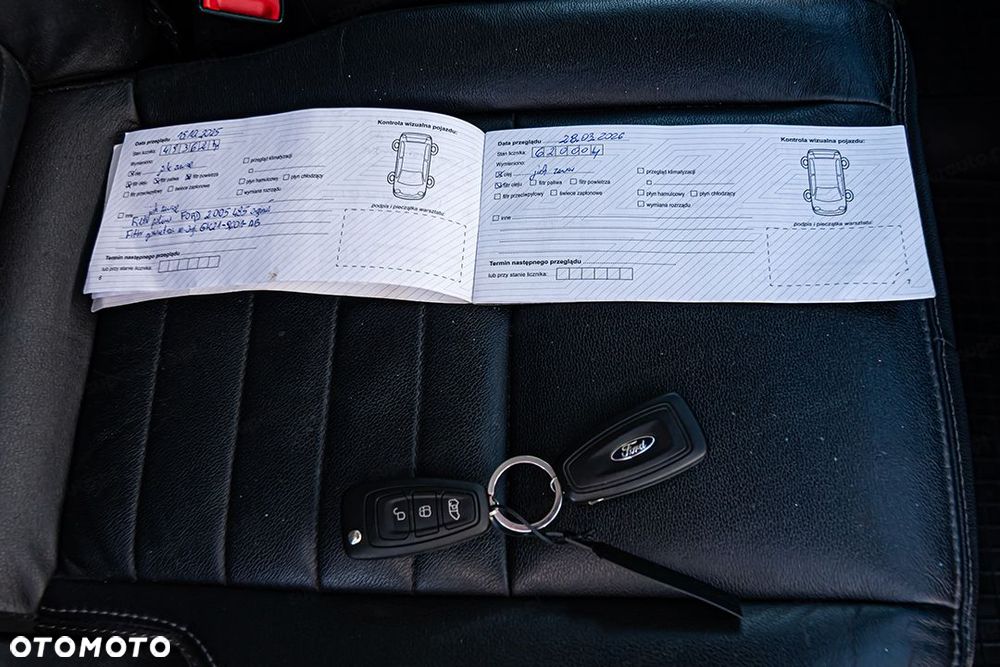 Data przeglądu 15.10.2025
Stan licznika:
Wymieniono:
olej
filtr oleju filtr paliwa filtr powietrza
filtr przeciwpyłowy świece zapłonowe
przegląd klimatyzacji
płyn hamulcowy płyn chłodzący
wymiana rozrządu
inne
FORD 2005
Termin następnego przeglądu
lub przy stanie licznika:
6
Kontrola wizualna pojazdu:
podpis i pieczątka warsztatu:
Data przeglądu 28.03.2026
Stan licznika: 62000
Wymieniono:
olej
filtr oleju filtr paliwa filtr powietrza
filtr przeciwpyłowy świece zapłonowe
przegląd klimatyzacji
płyn hamulcowy płyn chłodzący
wymiana rozrządu
inne
Termin następnego przeglądu
lub przy stanie licznika:
Kontrola wizualna pojazdu:
podpis i pieczątka warsztatu:
7
Ford
OTOMOTO